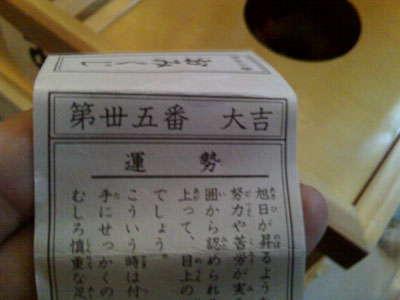 おみくじ
第丗五番 大吉
運勢
旭日が昇るよう
努力や苦労が実
囲から認められ
上って、目上の
でしょう。
こういう時は付
手にせっかくの
むしろ慎重な足